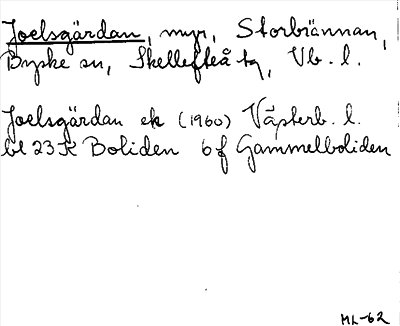 Joelsgärdan, myr, Storbrännan,
Byske sn, Skellefteå tg, Vb. l.
Joelsgärdan ek (1960) Västerb. l.
bl 23 K Boliden 6 f Gammelboliden
ML-62